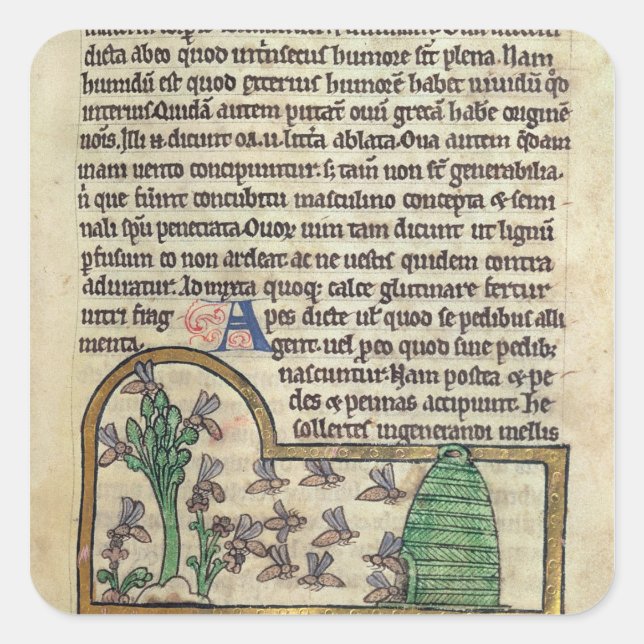 dicta ab eo quod intrinsecus humore sͭ plena. Nam
humidū est quod exterius humorē habet uiuidū qd̓
interius. Quidā autem putāt ouū grecā habe᷑ originē
nois̄. Illi .n. dicunt oa .u. litt̓a ablata. Oua autem q̄dam
inani uento concipiuntur. s; tam̄ non sͭ generabilia.
ñ que fūint concubitu masculino concepta ⁊ semi
nali spū penetrata. Quoꝝ uim tam dicunt ut lignū
ꝑfusum eo non ardeat ac ne uestis quidem contra
aduratur. Admixta quoq; calce glutinare fertur
uitri frag
menta.
Apes dicte ul̓ quod se pedibus alli
gent. uel ꝑ eo quod sine pedib;
nascuntur. Nam postea ⁊ pe
des ⁊ pennas accipiunt. he
sollertes in generandi mellis